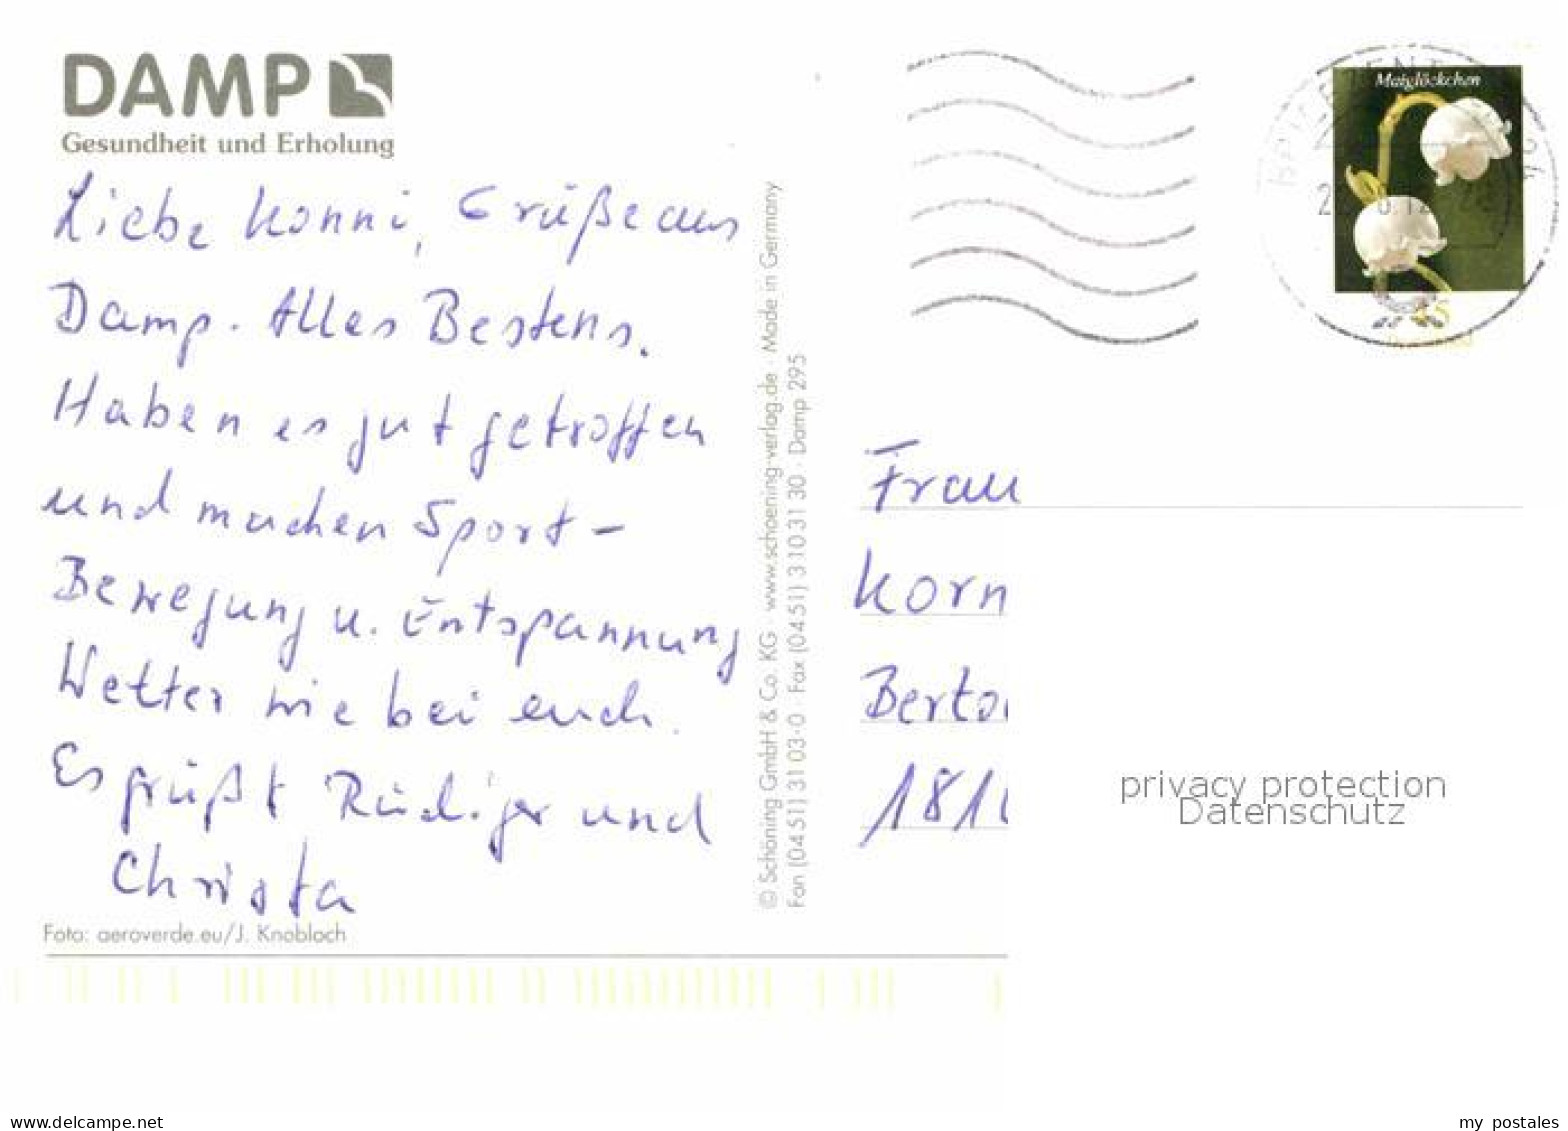 DAMP
Gesundheit und Erholung
Liebe Konni, Grüße aus
Damp. Alles Bestens.
Haben es gut getroffen
und machen Sport-
Bewegung u. Entspannung
Wetter wie bei euch.
Es grüßt Rüdiger und
Christa
Foto: aeroverde.eu/J. Knobloch
© Schöning GmbH & Co. KG · www.schoening-verlag.de · Made in Germany
Fon (04 51) 31 03-0 · Fax (04 51) 3 10 31 30 · Damp 295
Maiglöckchen
Frau
Korn
privacy protection
Datenschutz
delcampe.net
my_postales